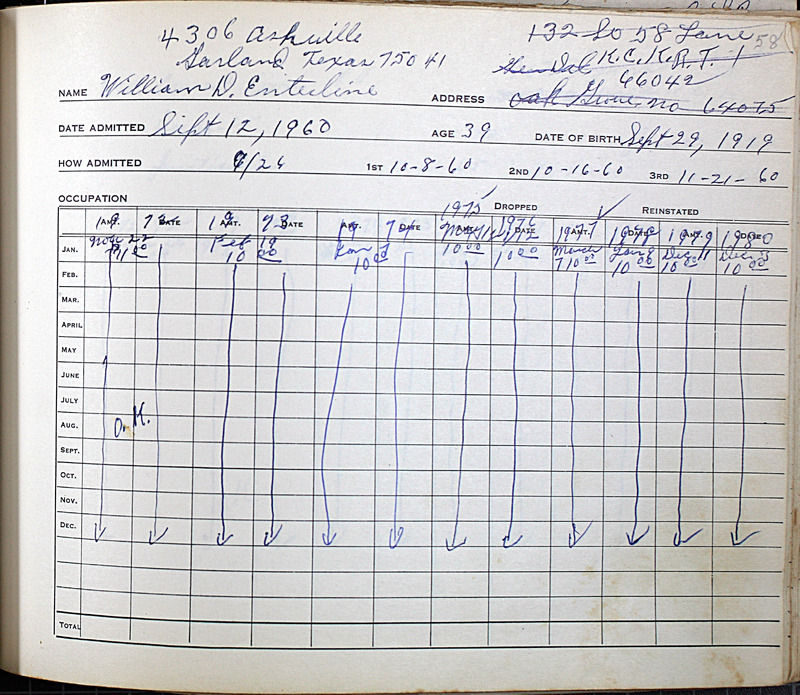 4306 Ashville
Garland Texas 75041
132 So 58 Lane 58
K.C.K. R.T. 1
66042
NAME William D. Enterline ADDRESS Oak Grove Mo 64075
DATE ADMITTED Sept 12, 1960 AGE 39 DATE OF BIRTH Sept 29, 1919
HOW ADMITTED 9/26 1ST 10-8-60 2ND 10-16-60 3RD 11-21-60
OCCUPATION 1975 DROPPED REINSTATED
19 AMT. 72 DATE 19 AMT. 73 DATE 19 AMT. 74 DATE AMT. 1976 DATE 1977 AMT. 1978 DATE 1979 AMT. 1980 DATE
JAN. Nov 27 Feb 19 Jan 7 10 00 10 00 March Jan 8 Dec 11
10 00 10 00 7 10 00 10 00 10 00 10 00
FEB.
MAR.
APRIL
MAY
JUNE
JULY
AUG. O.K.
SEPT.
OCT.
NOV.
DEC.
TOTAL